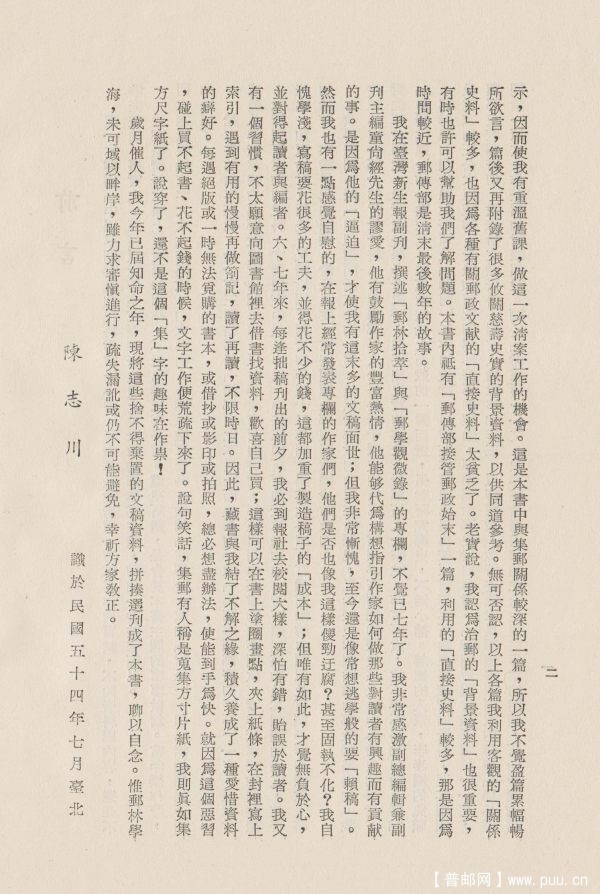 二
示，因而使我有重溫舊課，做這一次清案工作的機會。這是本書中與集郵關係較深的一篇，所以我不覺盈篇累幅暢
所欲言，篇後又再附錄了很多攸關慈壽史實的背景資料，以供同道參考。無可否認，以上各篇我利用客觀的「關係
史料」較多，也因爲各種有關郵政文献的「直接史料」太貧乏了。老實說，我認爲治郵的「背景資料」也很重要，
有時也許可以幫助我們了解問題。本書內祇有「郵傳部接管郵政始末」一篇，利用的「直接史料」較多，那是因爲
時間較近，郵傳部是清末最後數年的故事。
我在臺灣新生報副刋，撰述「郵林拾萃」與「郵學觀微錄」的專欄，不覺已七年了。我非常感激副總編輯兼副
刋主編童尙經先生的謬愛，他有鼓勵作家的豐富熱情，他能够代爲構想指引作家如何做那些對讀者有興趣而有貢献
的事。是因爲他的「逼迫」，才使我有這末多的文稿面世；但我非常慚愧，至今還是像常想逃學般的要「賴稿」。
然而我也有一點感覺自慰的，在報上經常發表專欄的作家們，他們是否也像我這樣傻勁迂腐？甚至固執不化？我自
愧學淺，寫稿要花很多的工夫，並得花不少的錢，這都加重了製造稿子的「成本」；但唯有如此，才覺無負於心，
並對得起讀者與編者。六、七年來，每逢拙稿刋出的前夕，我必到報社去校閱大樣，深怕有錯，貽誤於讀者。我又
有一個習慣，不太願意向圖書館裡去借書找資料，歡喜自己買；這樣可以在書上塗圈畫點，夾上紙條，在封裡寫上
索引，遇到有用的慢慢再做箚記，讀了再讀，不限時日。因此，藏書與我結了不解之緣，積久養成了一種愛惜資料
的癖好。每遇絕版或一時無法覓購的書本，或借抄或影印或拍照，總必想盡辦法，使能到手爲快。就因爲這個惡習
，碰上買不起書、花不起錢的時候，文字工作便荒疏下來了。說句笑話，集郵有人稱是蒐集方寸片紙，我則眞如集
方尺字紙了。說穿了，還不是這個「集」字的趣味在作祟！
歲月催人，我今年已屆知命之年，現將這些捨不得棄置的文稿資料，拼揍選刋成了本書，聊以自念。惟郵林學
海，未可域以畔岸，雖力求審愼進行，疏失漏訛或仍不可能避免，幸祈方家敎正。
陳志川
識於民國五十四年七月臺北
【普邮网】www.puu.cn